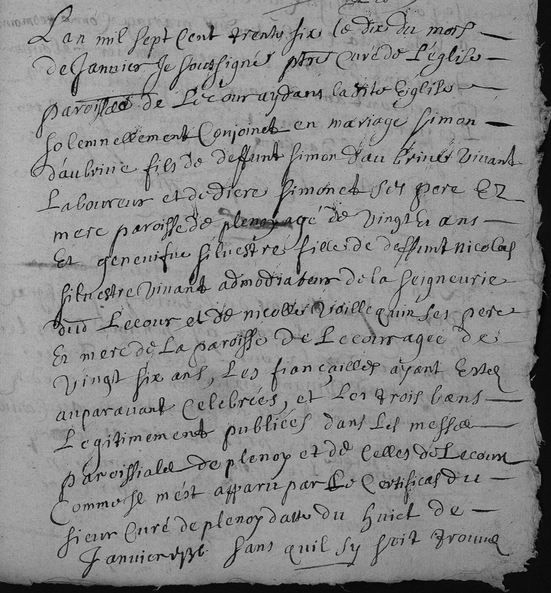 Lan mil sept Cent trente six le dix du mois
de Janvier Je soussigné ptre Curé de L'église
paroissiale de Lecour ay dans la dite Eglise
solemnellement Conjoinct en mariage simon
daubrive fils de deffunt simon daubrive vivant
Laboureur et de didiere simonet ses pere Et
mere paroisse de plenoy agé de vingt Et ans
Et genevifve silvestre fille de deffunt nicolas
silvestre vivant admodiateur de la seigneurie
dud Lecour et de nicolle ses pere
Et mere de La paroisse de Lecour agee de
vingt six ans, Les françailles ayant Esté
auparavant Celebrées, et Les trois bans
Legitimement publiées dans Les messe
paroissiale de plenoy et de Celles de Lecour
Comme Il m'est apparu par Le Certificas du
sieur Curé de plenoy datté du huict de
Janvier sans quil sy soit trouvé